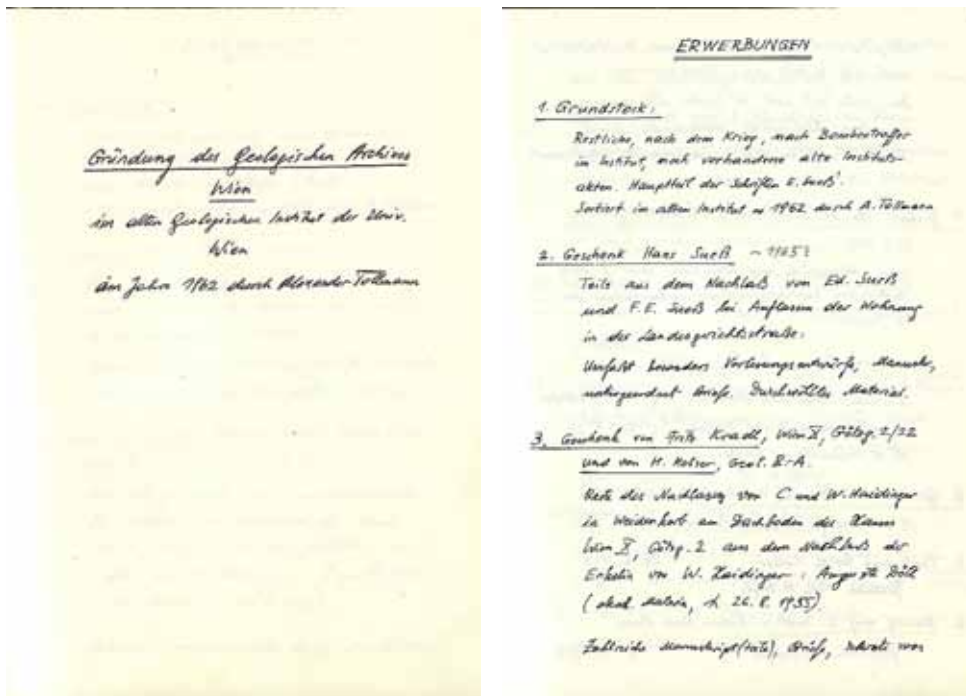 Gründung des Geologischen Archives
Wien
im alten Geologischen Institut der Univ.
Wien
im Jahr 1962 durch Alexander Tollmann
ERWERBUNGEN
1. Grundstock:
Restliche, nach dem Krieg, nach Bombentreffer
im Institut, noch vorhandene alte Instituts-
akten. Hauptteil der Schriften E. Sueß'.
Sortiert im alten Institut 1962 durch A. Tollmann
2. Geschenk Hans Sueß ~ 1965?
Teils aus dem Nachlaß von Ed. Sueß
und F.E. Sueß bei Auflassen der Wohnung
in der Landesgerichtsstraße.
Umfaßt besonders Vorlesungsentwürfe, Manuskr.,
ungeordnet Briefe. Durchwühltes Material.
3. Geschenk von Fritz Kradl, Wien X, Götzg. 2/22
und von H. Holzer, Geol. B.-A.
Reste des Nachlasses von C und W. Haidinger
in Weidenkorb am Dachboden des Hauses
Wien X, Götzg. 2 aus dem Nachlaß der
Enkelin von W. Haidinger: Auguste Döll
(akad. Malerin, † 26. 8. 1955)
Zahlreiche Manuskript(teile), Briefe, von